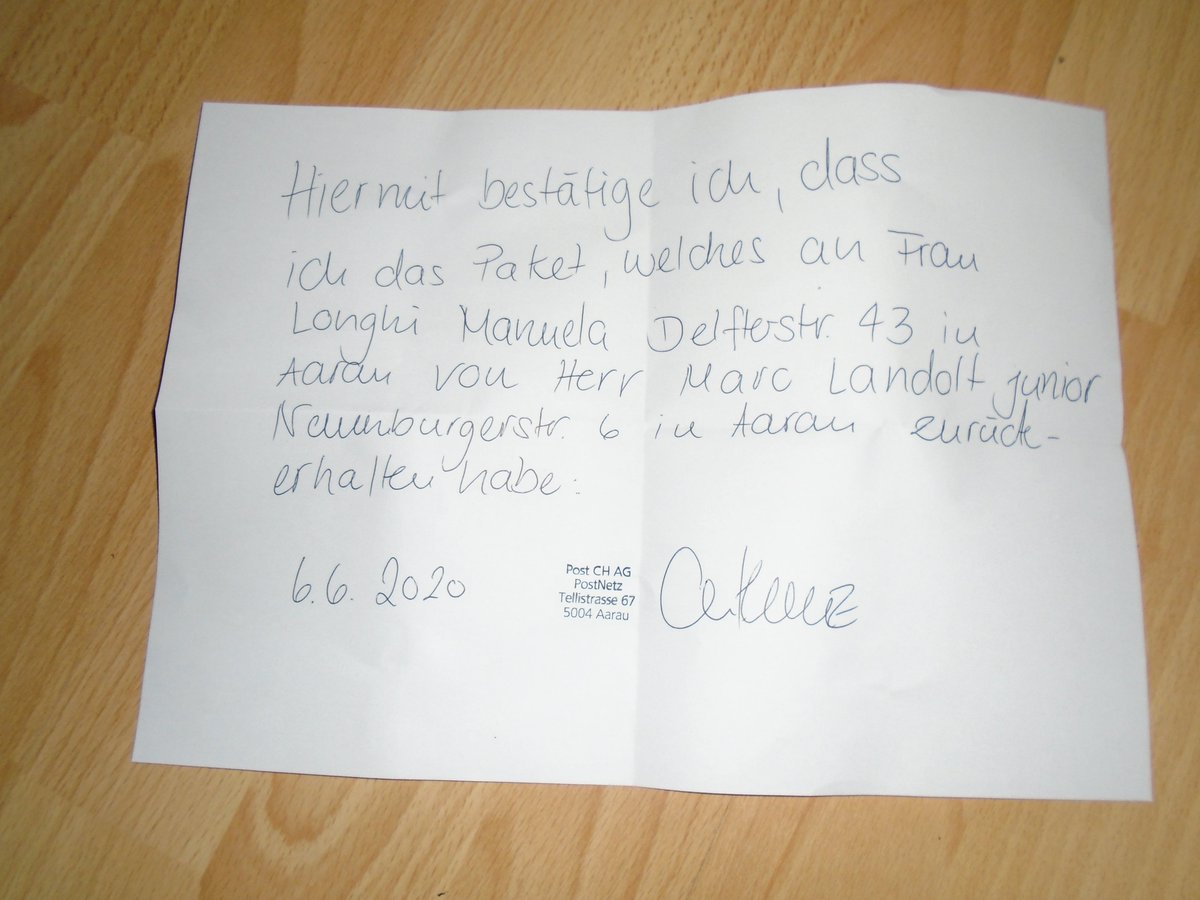 Hiermit bestätige ich, dass
ich das Paket, welches an Frau
Longhi Manuela Delfterstr. 43 in
Aarau von Herr Marc Landolt junior
Neuenburgerstr. 6 in Aarau zurück-
erhalten habe.
6.6.2020
Post CH AG
PostNetz
Tellistrasse 67
5004 Aarau